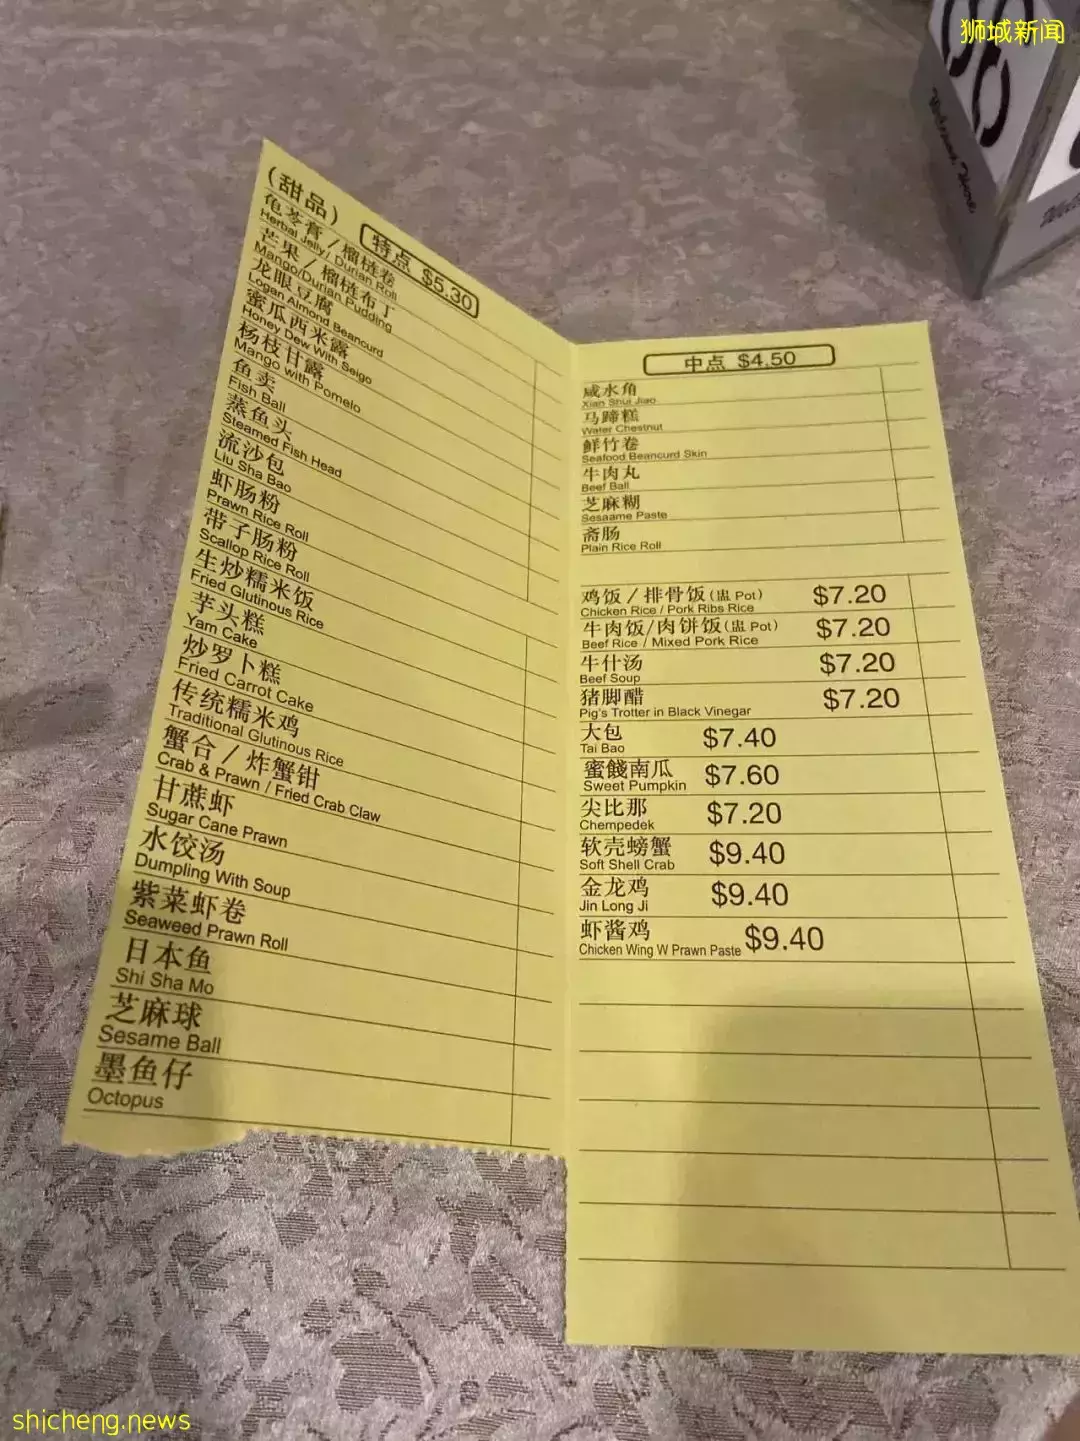 狮城新闻
(甜品)
特点 $5.30
龟苓膏 / 榴梿卷
Herbal Jelly / Durian Roll
芒果 / 榴梿布丁
Mango/Durian Pudding
龙眼豆腐
Logan Almond Beancurd
蜜瓜西米露
Honey Dew With Seigo
杨枝甘露
Mango with Pomelo
鱼卖
Fish Ball
蒸鱼头
Steamed Fish Head
流沙包
Liu Sha Bao
虾肠粉
Prawn Rice Roll
带子肠粉
Scallop Rice Roll
生炒糯米饭
Fried Glutinous Rice
芋头糕
Yam Cake
炒罗卜糕
Fried Carrot Cake
传统糯米鸡
Traditional Glutinous Rice
蟹合 / 炸蟹钳
Crab & Prawn / Fried Crab Claw
甘蔗虾
Sugar Cane Prawn
水饺汤
Dumpling With Soup
紫菜虾卷
Seaweed Prawn Roll
日本鱼
Shi Sha Mo
芝麻球
Sesame Ball
墨鱼仔
Octopus
中点 $4.50
咸水角
Xian Shui Jiao
马蹄糕
Water Chestnut
鲜竹卷
Seafood Beancurd Skin
牛肉丸
Beef Ball
芝麻糊
Sesaame Paste
斋肠
Plain Rice Roll
鸡饭 / 排骨饭 (盅 Pot) $7.20
Chicken Rice / Pork Ribs Rice
牛肉饭/肉饼饭 (盅 Pot) $7.20
Beef Rice / Mixed Pork Rice
牛什汤 $7.20
Beef Soup
猪脚醋 $7.20
Pig's Trotter in Black Vinegar
大包 $7.40
Tai Bao
蜜餞南瓜 $7.60
Sweet Pumpkin
尖比那 $7.20
Chempedek
软壳螃蟹 $9.40
Soft Shell Crab
金龙鸡 $9.40
Jin Long Ji
虾酱鸡 $9.40
Chicken Wing W Prawn Paste
shicheng.news